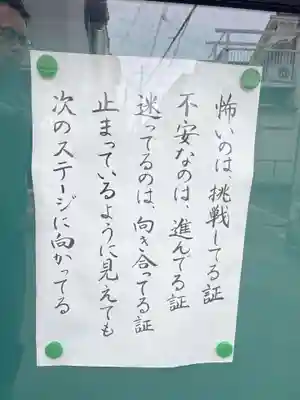 怖いのは、挑戦してる証
不安なのは、進んでる証
迷ってるのは、向き合ってる証
止まっているように見えても
次のステージに向かってる